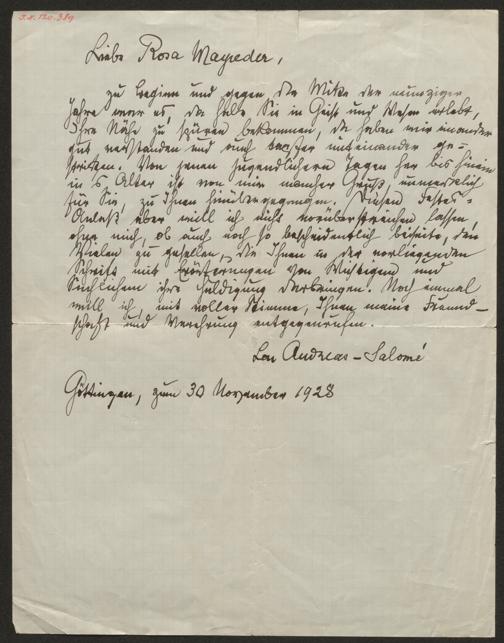 J.N. 120.389
Liebe Rosa Mayreder,
zu Beginn und gegen die Mitte der neunziger
Jahre war es, da habe Sie in Geist und Wesen erlebt,
Ihre Nähe zu spüren bekommen, da haben wir einander
gut verstanden und auch tapfer miteinander ge-
stritten. Von jenen jugendlichern Tagen her bis hinein
in's Alter ist von mir mancher Gruß, unmerklich
für Sie, zu Ihnen hinübergegangen. Diesen Festes-
Anlaß aber will ich nicht vorüberstreichen lassen,
ohne mich, ob auch noch so bescheidentlich, den
Vielen zu gesellen, die Ihnen in der vorliegenden
Schrift mit Erörterungen von Wichtigem und
Sachlichem ihre Huldigung darbringen. Noch einmal
will ich mit voller Stimme, Ihnen meine Freund-
schaft und Verehrung entgegenrufen.
Lou Andreas-Salomé
Göttingen, zum 30 November 1928